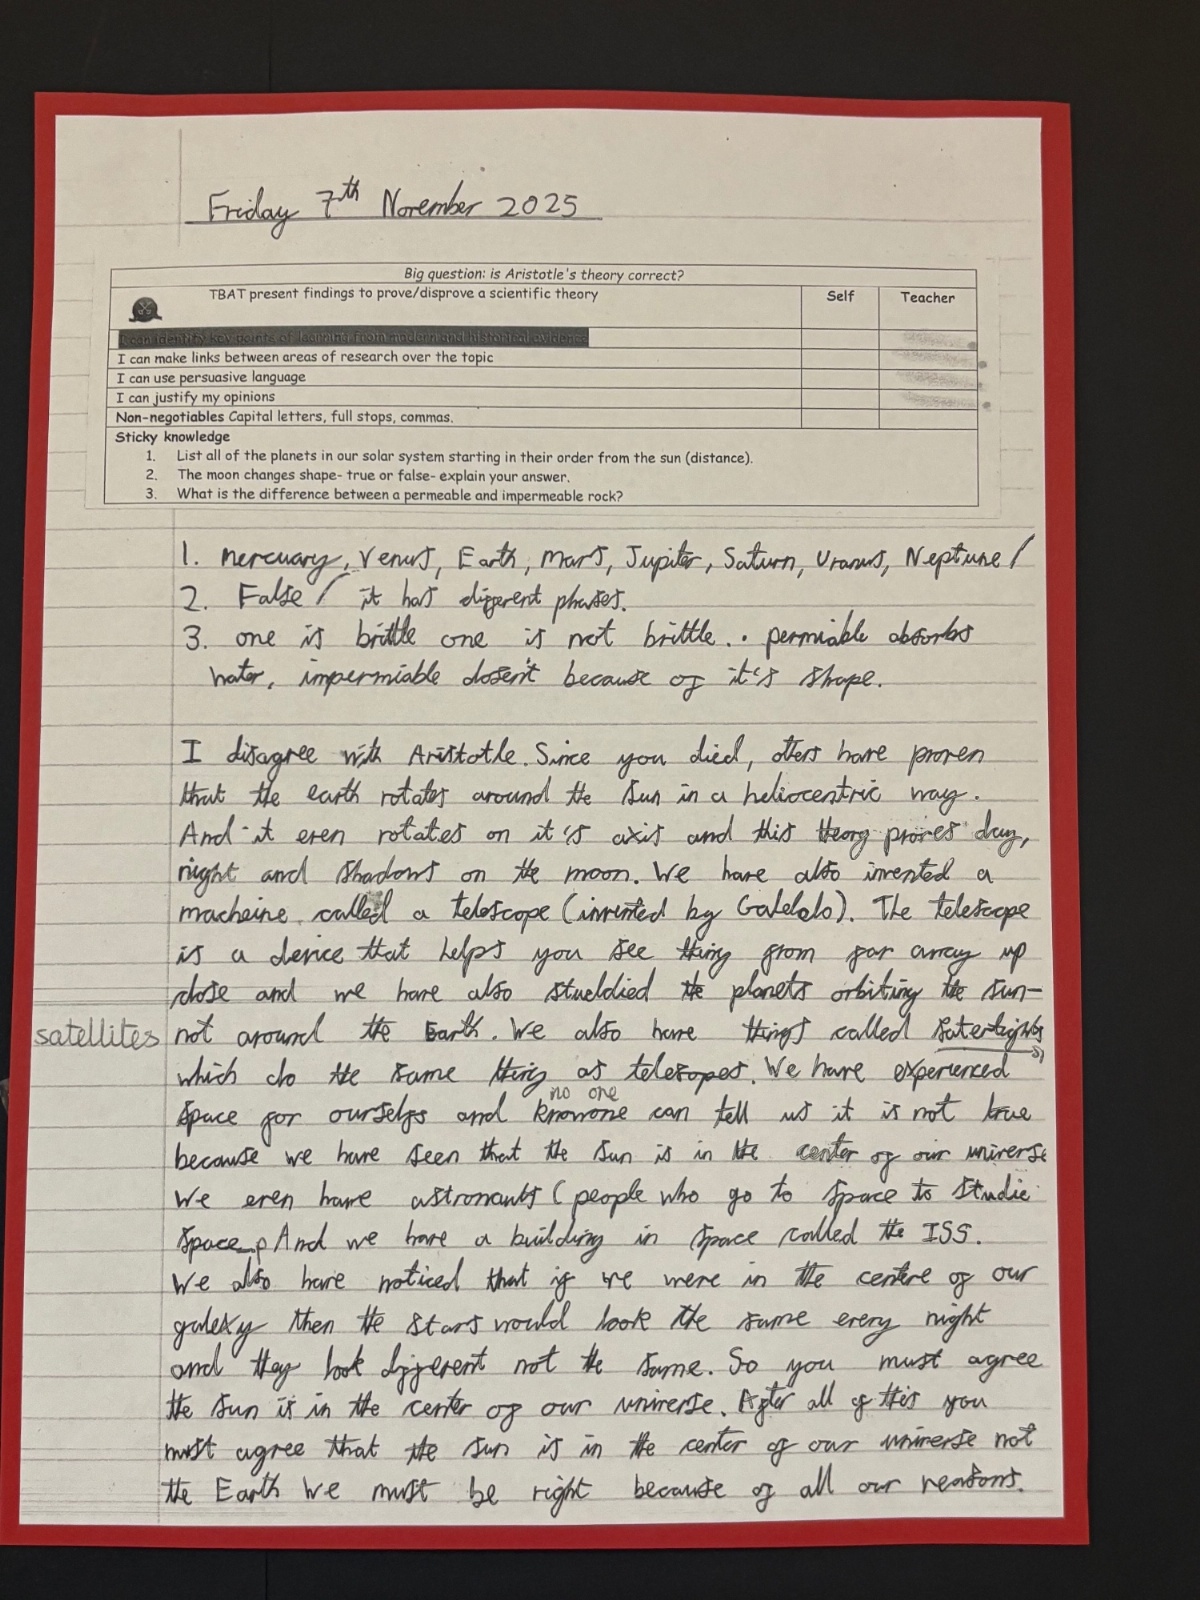 Friday 7th November 2025
Big question: is Aristotle's theory correct?
TBAT present findings to prove/disprove a scientific theory
Self
Teacher
I can identify key points of learning from modern and historical evidence
I can make links between areas of research over the topic
I can use persuasive language
I can justify my opinions
Non-negotiables Capital letters, full stops, commas.
Sticky knowledge
1. List all of the planets in our solar system starting in their order from the sun (distance).
2. The moon changes shape- true or false- explain your answer.
3. What is the difference between a permeable and impermeable rock?
1. mercuary, Venus, Earth, Mars, Jupiter, Saturn, Uranus, Neptune /
2. False / it has different phases.
3. one is brittle one is not brittle. . permiable absorbs
water, impermiable dosen't because of it's shape.
I disagree with Aristotle. Since you died, others have proven
that the earth rotates around the sun in a heliocentric way.
And it even rotates on it's axis and this theory proves day,
night and shadows on the moon. We have also invented a
macheine called a telescope (invented by Galelelo). The telescope
is a device that helps you see thing from far away up
close and we have also stueldied the planets orbiting the sun-
satellites not around the Earth. We also have things called saterlights
which do the same thing as telesopes. We have experienced
no one
space for ourselfs and knowone can tell us it is not true
because we have seen that the sun is in the center of our universe
We even have astronauts (people who go to space to studie
space. And we have a building in space called the ISS.
We also have noticed that if we were in the centre of our
galexy then the stars would look the same every night
and they look different not the same. So you must agree
the sun is in the center of our universe. After all of this you
must agree that the sun is in the center of our universe not
the Earth We must be right because of all our reasons.